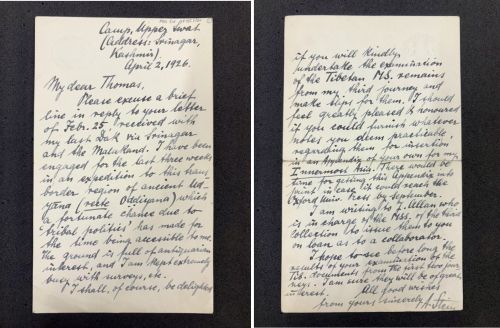 Camp, Upper Swat
(Address: Srinagar,
Kashmir)
April 2, 1926.
My dear Thomas,
Please excuse a brief
line in reply to your letter
of Febr. 25 received with
my last Dak via Srinagar
and the Malakand. I have been
engaged for the last three weeks
in an expedition to this trans
border region of ancient Ud-
yāna (recte Oddiyāna) which
a fortunate chance due to
'tribal politics' has made for
the time being accessible to me.
The ground is full of antiquarian
interest, and I am kept extremely
busy with surveys, etc.
I shall, of course, be delighted
if you will kindly
undertake the examination
of the Tibetan MS. remains
from my third journey and
make slips for them. I should
feel greatly pleased & honoured
if you could furnish whatever
notes you deem practicable,
regarding them for insertion
in an Appendix of your own for my
Innermost Asia. There would be
time for getting this Appendix into
print in case it could reach the
Oxford Univ. Press by September.
I am writing to J. Allan who
is in charge of the MSS. of the third
Collection to issue them to you
on loan as to a collaborator.
I hope to see before long the
results of your examination of the
Tib. documents from the first two jour-
neys. I am sure they will be of great
interest. All good wishes
from yours sincerely A. Stein